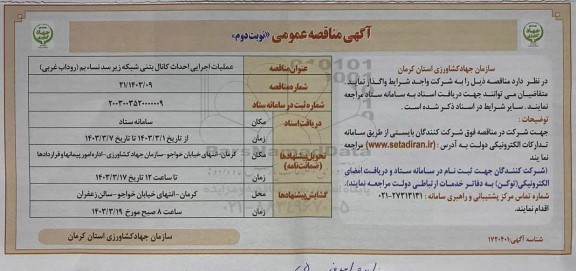 آگهی مناقصه عمومی «نوبت دوم»
سازمان جهادکشاورزی استان کرمان
در نظر دارد مناقصه ذیل را به شرکت واجد شرایط واگذار نماید.
متقاضیان می توانند جهت دریافت اسناد به سامانه ستاد مراجعه
نمایند. سایر شرایط در اسناد ذکر شده است.
توضیحات :
جهت شرکت در مناقصه فوق شرکت کنندگان بایستی از طریق سامانه
تدارکات الکترونیکی دولت به آدرس : (www.setadiran.ir) مراجعه
نمایند
(شرکت کنندگان جهت ثبت نام در سامانه ستاد و دریافت امضای
الکترونیکی(توکن) به دفاتر خدمات ارتباطی دولت مراجعه نمایند).
شماره تماس مرکز پشتیبانی و راهبری سامانه : ۲۷۳۱۳۱۳۱-۰۲۱
اقدام نمایند.
شناسه آگهی: ۱۷۲۰۴۰۱
عنوان مناقصه عملیات اجرایی احداث کانال بتنی شبکه زیر سد نساء بم (روداب غربی)
شماره مناقصه ۳۱/۱۴۰۳/۰۹
شماره ثبت در سامانه ستاد ۲۰۰۳۰۰۳۵۲۰۰۰۰۰۰۹
دریافت اسناد مکان سامانه ستاد
زمان از تاریخ ۱۴۰۳/۳/۱ تا تاریخ ۱۴۰۳/۳/۷
تحویل پیشنهادها (ضمانت نامه) مکان کرمان-انتهای خیابان خواجو-سازمان جهادکشاورزی-اداره امور پیمانها و قراردادها
زمان تا ساعت ۱۳ تاریخ ۱۴۰۳/۳/۱۷
گشایش پیشنهادها محل کرمان-انتهای خیابان خواجو-سالن زعفران
زمان ساعت ۸ صبح مورخ ۱۴۰۳/۳/۱۹
سازمان جهادکشاورزی استان کرمان